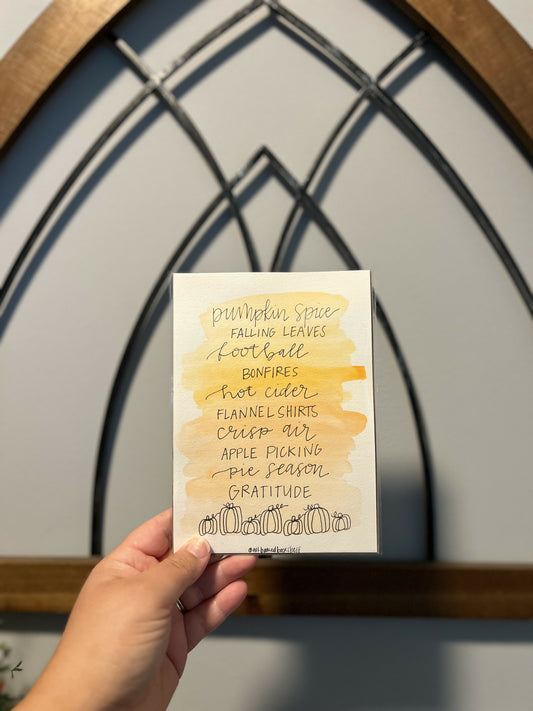 pumpkin spice
FALLING LEAVES
football
BONFIRES
hot cider
FLANNEL SHIRTS
crisp air
APPLE PICKING
pie season
GRATITUDE